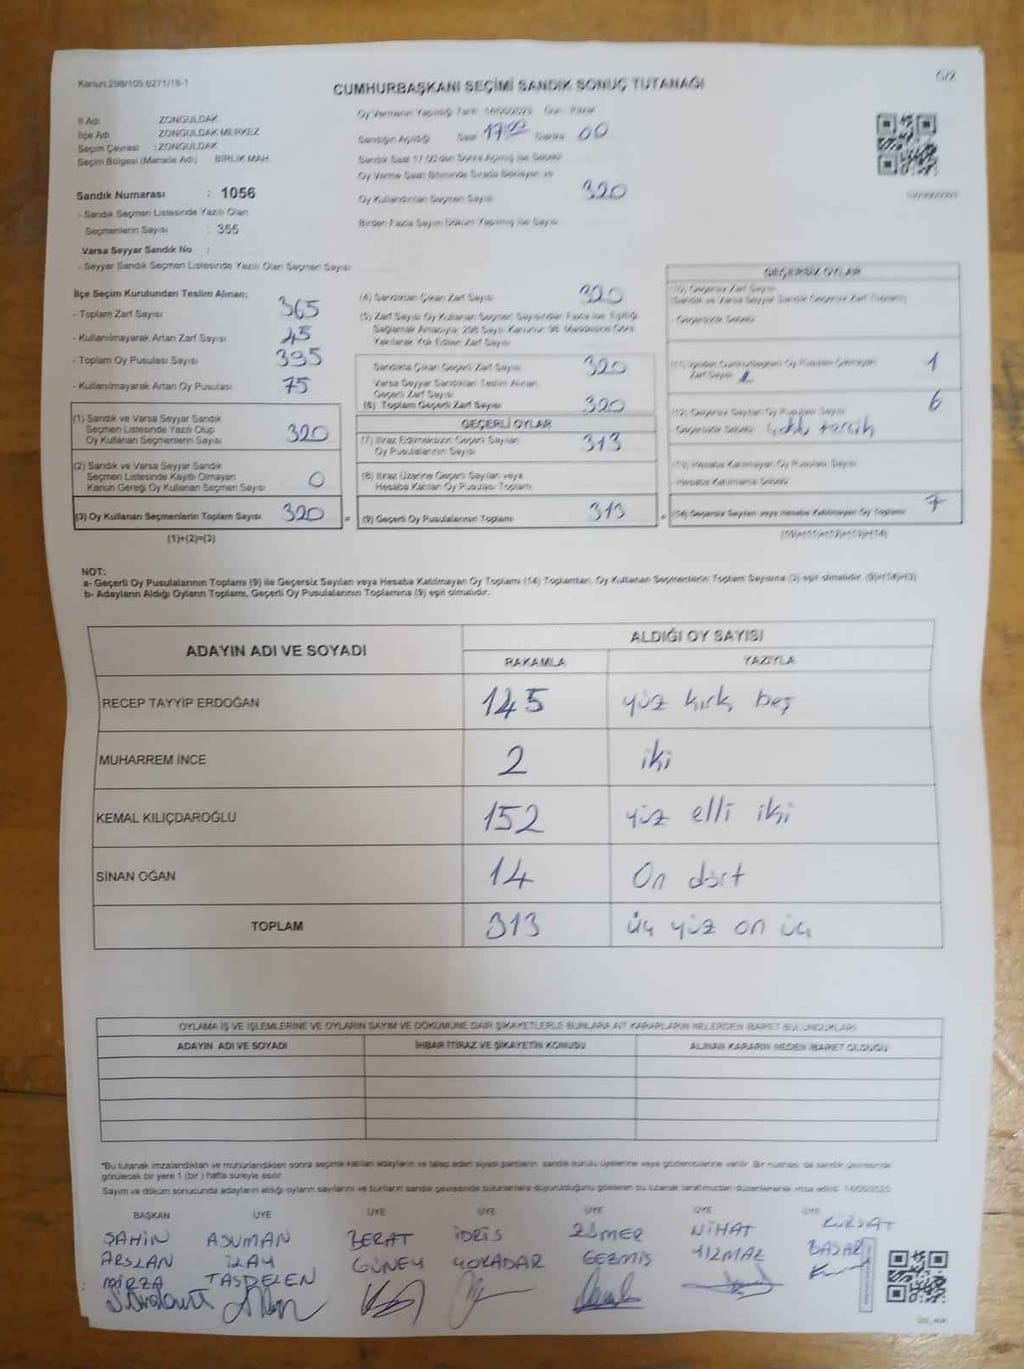 Kanun:298/105 6271/18-1
CUMHURBAŞKANI SEÇİMİ SANDIK SONUÇ TUTANAĞI
İl Adı ZONGULDAK
İlçe Adı ZONGULDAK MERKEZ
Seçim Çevresi : ZONGULDAK
Seçim Bölgesi (Mahalle Adı) BİRLİK MAH.
Sandık Numarası : 1056
- Sandık Seçmen Listesinde Yazılı Olan
Seçmenlerin Sayısı : 355
Varsa Seyyar Sandık No :
- Seyyar Sandık Seçmen Listesinde Yazılı Olan Seçmen Sayısı
Oy Vermenin Yapıldığı Tarih 14/05/2023 Gün Pazar
Sandığın Açıldığı Saat 17:00 Dakika 00
Sandık Saat 17.00'dan Sonra Açılmış ise Sebebi
Oy Verme Saati Bitiminde Sırada Bekleyen ve
Oy Kullandırılan Seçmen Sayısı 320
Birden Fazla Sayım Döküm Yapılmış ise Sayısı
İlçe Seçim Kurulundan Teslim Alınan;
- Toplam Zarf Sayısı 365
- Kullanılmayarak Artan Zarf Sayısı 45
- Toplam Oy Pusulası Sayısı 395
- Kullanılmayarak Artan Oy Pusulası 75
(1) Sandık ve Varsa Seyyar Sandık
Seçmen Listesinde Yazılı Olup
Oy Kullanan Seçmenlerin Sayısı 320
(2) Sandık ve Varsa Seyyar Sandık
Seçmen Listesinde Kayıtlı Olmayan
Kanun Gereği Oy Kullanan Seçmen Sayısı 0
(3) Oy Kullanan Seçmenlerin Toplam Sayısı 320
(1)+(2)=(3)
(4) Sandıktan Çıkan Zarf Sayısı 320
(5) Zarf Sayısı Oy Kullanan Seçmen Sayısından Fazla ise, Eşitliği
Sağlamak Amacıyla, 298 Sayılı Kanunun 98. Maddesine Göre
Yakılarak Yok Edilen Zarf Sayısı
Sandıkta Çıkan Geçerli Zarf Sayısı 320
Varsa Seyyar Sandıktan Teslim Alınan
Geçerli Zarf Sayısı
(6) Toplam Geçerli Zarf Sayısı 320
GEÇERLİ OYLAR
(7) İtiraz Edilmeksizin Geçerli Sayılan
Oy Pusulalarının Sayısı 313
(8) İtiraz Üzerine Geçerli Sayılan veya
Hesaba Katılan Oy Pusulası Toplamı
(9) Geçerli Oy Pusulalarının Toplamı 313
GEÇERSİZ OYLAR
(10) Geçersiz Zarf Sayısı
(Sandık ve Varsa Seyyar Sandık Geçersiz Zarf Toplamı)
- Geçersizlik Sebebi
Zarf Sayısı 1
(12) Geçersiz Sayılan Oy Pusulası Sayısı 6
- Geçersizlik Sebebi tercih
(13) Hesaba Katılmayan Oy Pusulası Sayısı
- Hesaba Katılmama Sebebi
(14) Geçersiz Sayılan veya Hesaba Katılmayan Oy Toplamı 7
NOT:
a- Geçerli Oy Pusulalarının Toplamı (9) ile Geçersiz Sayılan veya Hesaba Katılmayan Oy Toplamı (14) Toplamları, Oy Kullanan Seçmenlerin Toplam Sayısına (3) eşit olmalıdır. (9)+(14)=(3)
b- Adayların Aldığı Oyların Toplamı, Geçerli Oy Pusulalarının Toplamına (9) eşit olmalıdır.
ADAYIN ADI VE SOYADI ALDIĞI OY SAYISI
RAKAMLA YAZIYLA
RECEP TAYYİP ERDOĞAN 145 yüz kırk beş
MUHARREM İNCE 2 iki
KEMAL KILIÇDAROĞLU 152 yüz elli iki
SİNAN OĞAN 14 On dört
TOPLAM 313 üç yüz on üç
OYLAMA İŞ VE İŞLEMLERİNE VE OYLARIN SAYIM VE DÖKÜMÜNE DAİR ŞİKAYETLERLE BUNLARA AİT KARARLARIN NELERDEN İBARET BULUNDUKLARI
ADAYIN ADI VE SOYADI İHBAR İTİRAZ VE ŞİKAYETİN KONUSU ALINAN KARARIN NEDEN İBARET OLDUĞU
*Bu tutanak imzalandıktan ve mühürlendikten sonra seçime katılan adayların ve talep eden siyasi partilerin sandık kurulu üyelerine veya gözlemcilerine verilir. Bir nüshası da sandık çevresinde
görülecek bir yere 1 (bir) hafta süreyle asılır.
Sayım ve döküm sonucunda adayların aldığı oyların sayılarını ve bunların sandık çevresinde bulunanlara duyurulduğunu gösteren bu tutanak tarafımızdan düzenlenerek imza edildi. 14/05/2023
BAŞKAN ÜYE ÜYE ÜYE ÜYE ÜYE ÜYE
ŞAHİN ASUMAN BERAT İDRİS NİHAT KÜRŞAT
ARSLAN İLAY GÜNEY YILMAZ
MİRZA TAŞDELEN